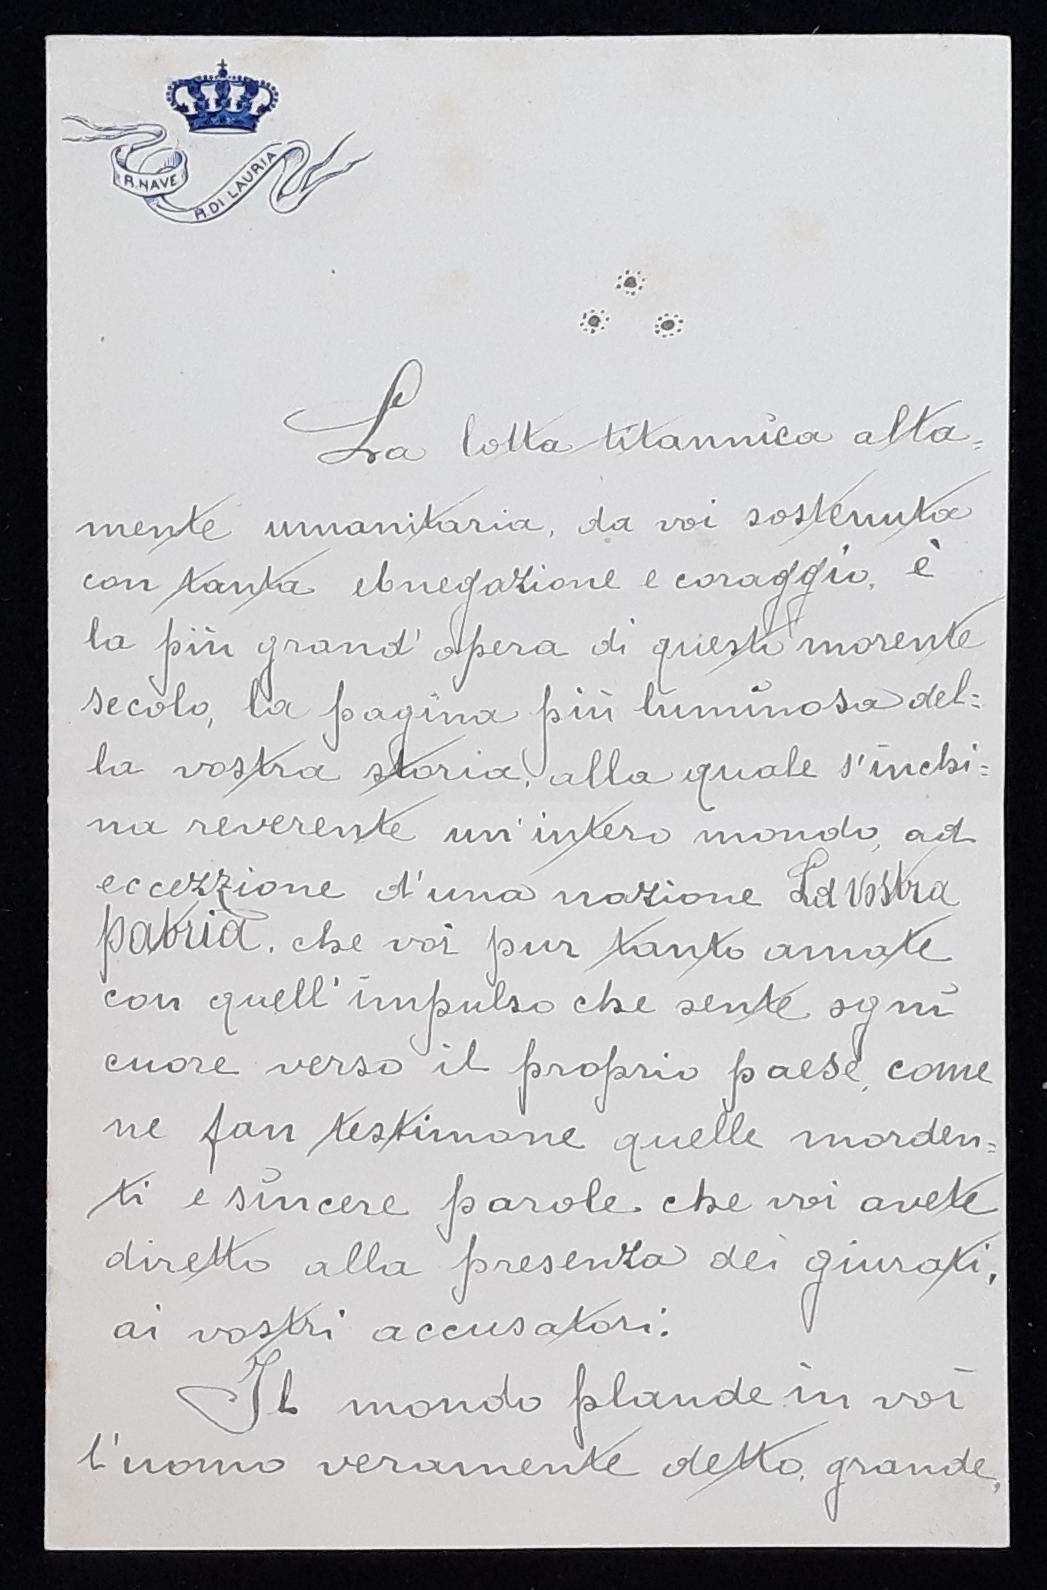 R. NAVE
R. DI LAURIA
La lotta titannica alta=
mente umanitaria, da voi sostenuta
con tanta ebnegazione e coraggio, è
la più grand' opera di questi morente
secolo, la pagina più luminosa del=
la vostra storia, alla quale s'inchi=
na reverente un' intero mondo, ad
eccezzione d'una nazione La vostra
patria, che voi pur tanto amate
con quell' impulso che sente ogni
cuore verso il proprio paese, come
ne fan testimone quelle morden=
ti e sincere parole che voi avete
diretto alla presenza dei giurati,
ai vostri accusatori.
Il mondo plaude in voi
l'uomo veramente detto, grande,